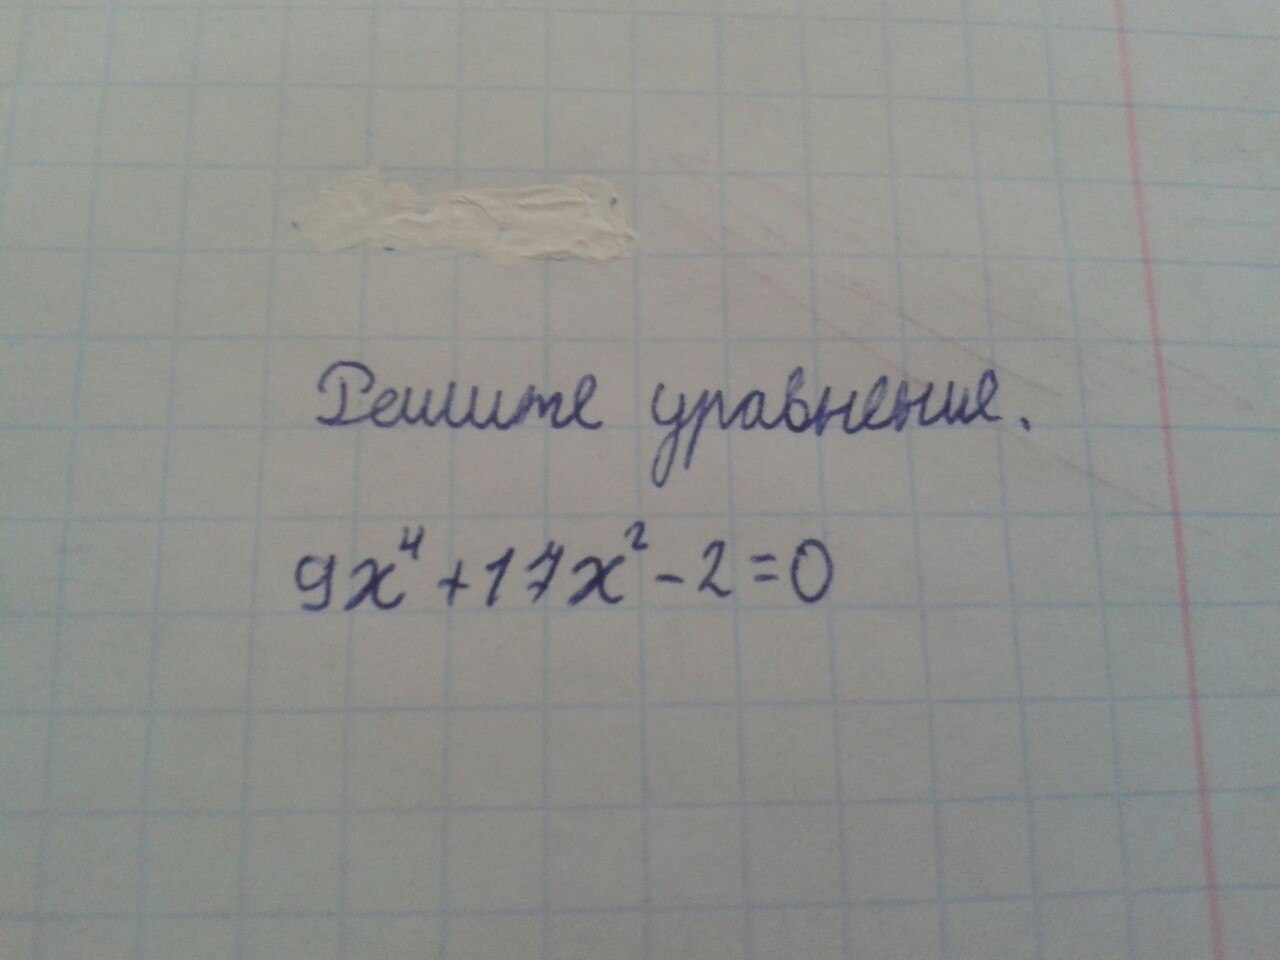 Решите уравнение.
9x⁴+17x²-2=0